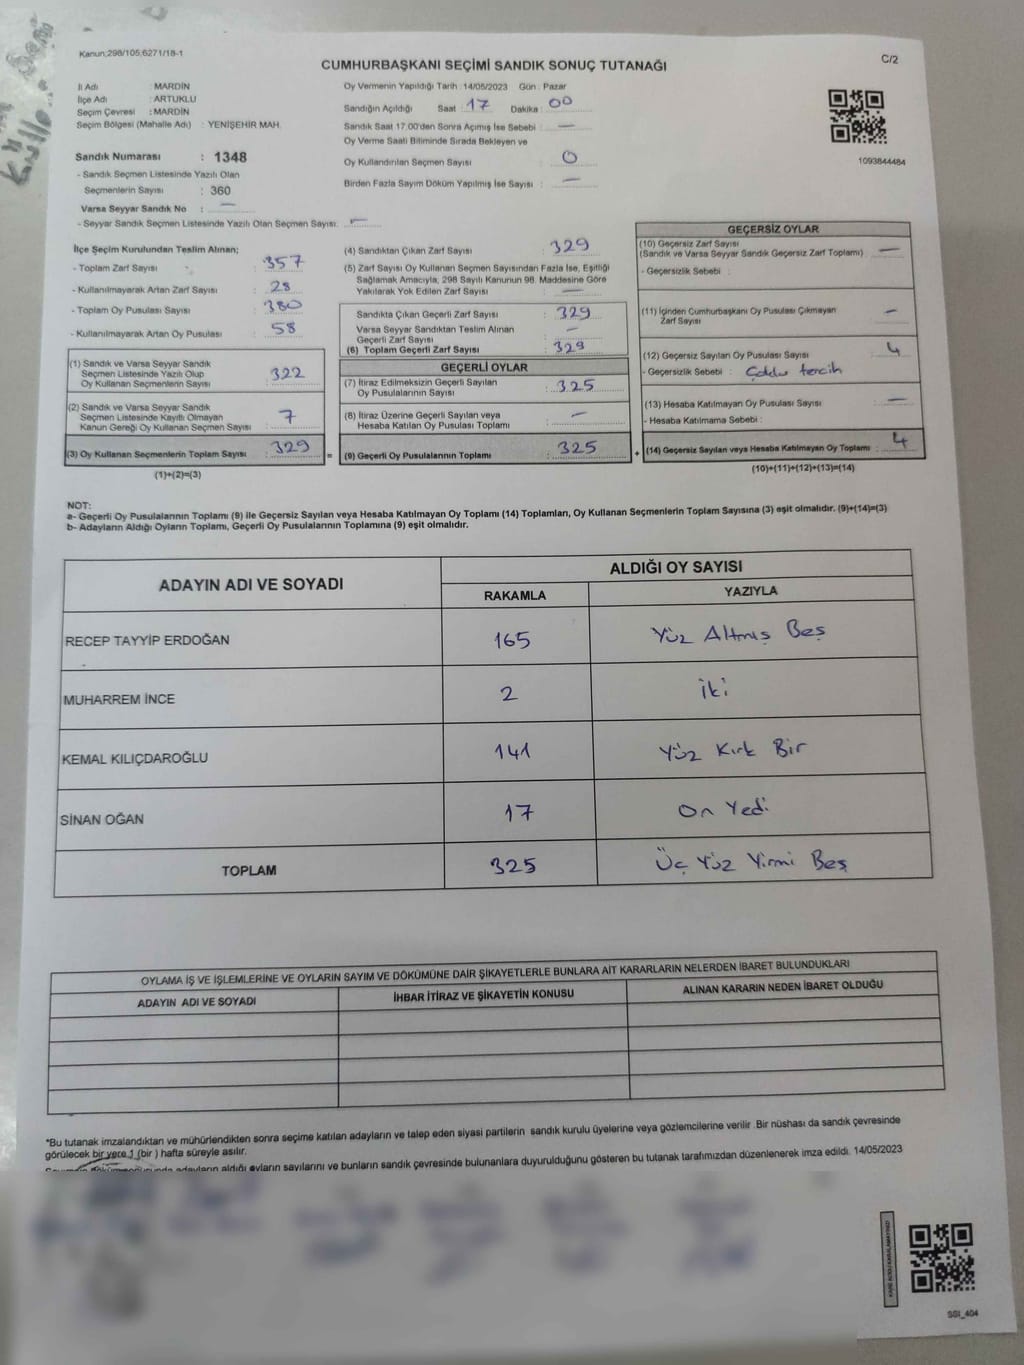 Kanun:298/105,6271/18-1
CUMHURBAŞKANI SEÇİMİ SANDIK SONUÇ TUTANAĞI
C/2
İl Adı : MARDİN
İlçe Adı : ARTUKLU
Seçim Çevresi : MARDİN
Seçim Bölgesi (Mahalle Adı) : YENİŞEHİR MAH.
Sandık Numarası : 1348
- Sandık Seçmen Listesinde Yazılı Olan
Seçmenlerin Sayısı : 360
Varsa Seyyar Sandık No : —
- Seyyar Sandık Seçmen Listesinde Yazılı Olan Seçmen Sayısı: —
Oy Vermenin Yapıldığı Tarih : 14/05/2023 Gün : Pazar
Sandığın Açıldığı Saat : 17 Dakika : 00
Sandık Saat 17.00'den Sonra Açımış İse Sebebi : —
Oy Verme Saati Bitiminde Sırada Bekleyen ve
Oy Kullandırılan Seçmen Sayısı : 0
Birden Fazla Sayım Döküm Yapılmış İse Sayısı : —
1093844484
İlçe Seçim Kurulundan Teslim Alınan;
- Toplam Zarf Sayısı : 357
- Kullanılmayarak Artan Zarf Sayısı : 28
- Toplam Oy Pusulası Sayısı : 380
- Kullanılmayarak Artan Oy Pusulası : 58
(1) Sandık ve Varsa Seyyar Sandık
Seçmen Listesinde Yazılı Olup
Oy Kullanan Seçmenlerin Sayısı : 322
(2) Sandık ve Varsa Seyyar Sandık
Seçmen Listesinde Kayıtlı Olmayan
Kanun Gereği Oy Kullanan Seçmen Sayısı : 7
(3) Oy Kullanan Seçmenlerin Toplam Sayısı : 329
(1)+(2)=(3)
=
(4) Sandıktan Çıkan Zarf Sayısı : 329
(5) Zarf Sayısı Oy Kullanan Seçmen Sayısından Fazla İse, Eşitliği
Sağlamak Amacıyla, 298 Sayılı Kanunun 98. Maddesine Göre
Yakılarak Yok Edilen Zarf Sayısı : —
Sandıkta Çıkan Geçerli Zarf Sayısı : 329
Varsa Seyyar Sandıktan Teslim Alınan
Geçerli Zarf Sayısı : —
(6) Toplam Geçerli Zarf Sayısı : 329
GEÇERLİ OYLAR
(7) İtiraz Edilmeksizin Geçerli Sayılan
Oy Pusulalarının Sayısı : 325
(8) İtiraz Üzerine Geçerli Sayılan veya
Hesaba Katılan Oy Pusulası Toplamı : —
(9) Geçerli Oy Pusulalarının Toplamı : 325
+
GEÇERSİZ OYLAR
(10) Geçersiz Zarf Sayısı
(Sandık ve Varsa Seyyar Sandık Geçersiz Zarf Toplamı) : —
- Geçersizlik Sebebi :
(11) İçinden Cumhurbaşkanı Oy Pusulası Çıkmayan
Zarf Sayısı : —
(12) Geçersiz Sayılan Oy Pusulası Sayısı : 4
- Geçersizlik Sebebi : tercih
(13) Hesaba Katılmayan Oy Pusulası Sayısı : —
- Hesaba Katılmama Sebebi :
(14) Geçersiz Sayılan veya Hesaba Katılmayan Oy Toplamı : 4
(10)+(11)+(12)+(13)=(14)
NOT:
a- Geçerli Oy Pusulalarının Toplamı (9) ile Geçersiz Sayılan veya Hesaba Katılmayan Oy Toplamı (14) Toplamları, Oy Kullanan Seçmenlerin Toplam Sayısına (3) eşit olmalıdır. (9)+(14)=(3)
b- Adayların Aldığı Oyların Toplamı, Geçerli Oy Pusulalarının Toplamına (9) eşit olmalıdır.
ADAYIN ADI VE SOYADI
ALDIĞI OY SAYISI
RAKAMLA YAZIYLA
RECEP TAYYİP ERDOĞAN 165 Yüz Altmış Beş
MUHARREM İNCE 2 İki
KEMAL KILIÇDAROĞLU 141 Yüz Kırk Bir
SİNAN OĞAN 17 On Yedi
TOPLAM 325 Üç Yüz Yirmi Beş
OYLAMA İŞ VE İŞLEMLERİNE VE OYLARIN SAYIM VE DÖKÜMÜNE DAİR ŞİKAYETLERLE BUNLARA AİT KARARLARIN NELERDEN İBARET BULUNDUKLARI
ADAYIN ADI VE SOYADI İHBAR İTİRAZ VE ŞİKAYETİN KONUSU ALINAN KARARIN NEDEN İBARET OLDUĞU
*Bu tutanak imzalandıktan ve mühürlendikten sonra seçime katılan adayların ve talep eden siyasi partilerin sandık kurulu üyelerine veya gözlemcilerine verilir .Bir nüshası da sandık çevresinde
görülecek bir yere 1 (bir ) hafta süreyle asılır.
adayların aldığı oyların sayılarını ve bunların sandık çevresinde bulunanlara duyurulduğunu gösteren bu tutanak tarafımızdan düzenlenerek imza edildi. 14/05/2023
SSI_404